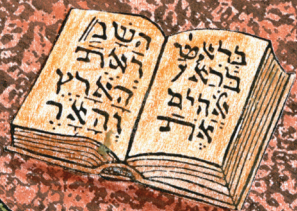 בראשית
ברא
אלהים
את
השמים
ואת
הארץ
והארץ